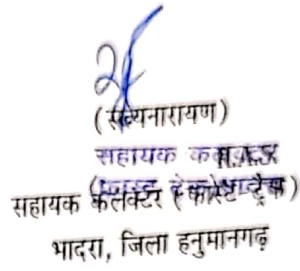 (सत्यनारायण)
सहायक R.A.S
सहायक कलेक्टर (फास्ट ट्रैक)
भादरा, जिला हनुमानगढ़